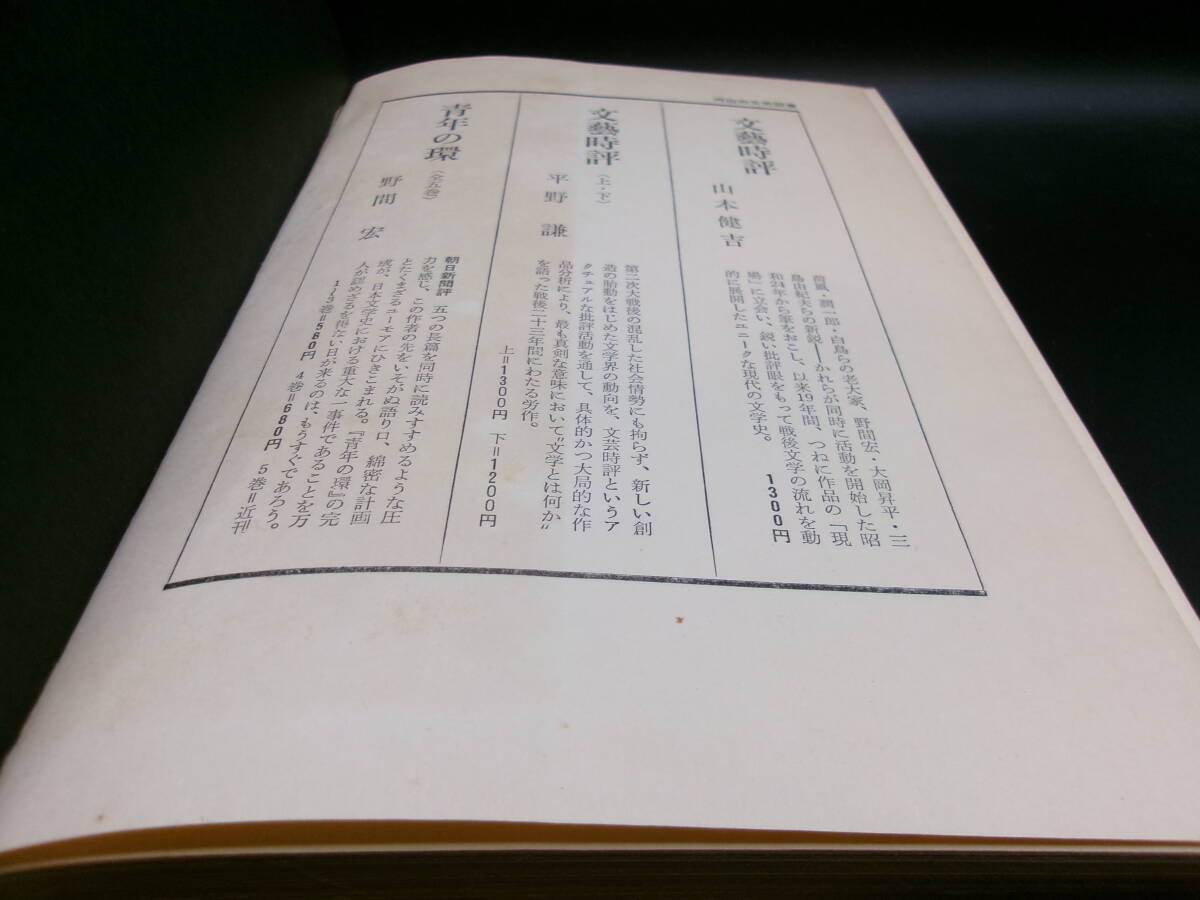 文藝時評
山本健吉
荷風・潤一郎・白鳥らの老大家、野間宏・大岡昇平・三
島由紀夫らの新鋭──かれらが同時に活動を開始した昭
和24年から筆をおこし、以来19年間、つねに作品の「現
場」に立会い、鋭い批評眼をもって戦後文学の流れを動
的に展開したユニークな現代の文学史。
1300円
文藝時評
〈上・下〉
平野謙
第二次大戦後の混乱した社会情勢にも拘らず、新しい創
造の胎動をはじめた文学界の動向を、文芸時評というア
クチュアルな批評活動を通して、具体的かつ大局的な作
品分析により、最も真剣な意味において〝文学とは何か〟
を語った戦後二十三年間にわたる労作。
上=1300円 下=1200円
青年の環
〈全五巻〉
野間宏
朝日新聞評 五つの長篇を同時に読みすすめるような圧
力を感じ、この作者の先をいそがぬ語り口、綿密な計画
とたくまざるユーモアにひきこまれる。『青年の環』の完
成が、日本文学史における重大な一事件であることを万
人が認めざるを得ない日が来るのは、もうすぐであろう。
1〜3巻=560円 4巻=680円 5巻=近刊